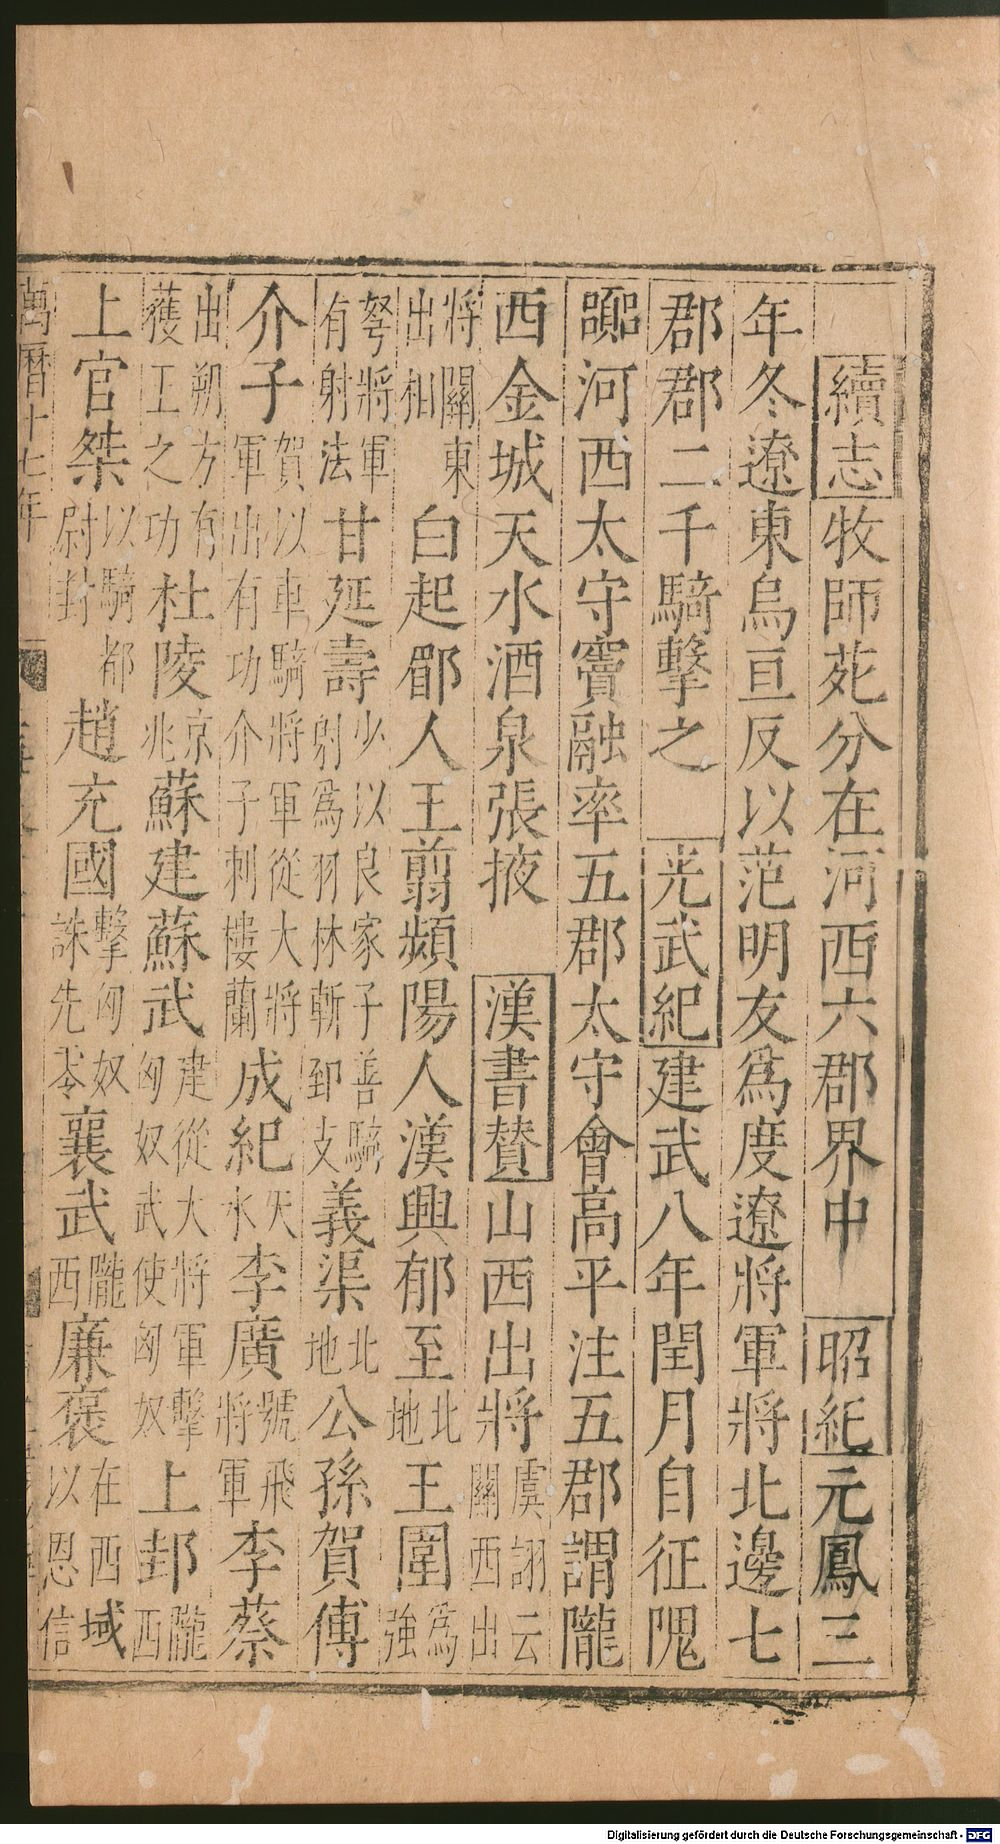 續志牧師苑分在河西六郡界中　昭紀元鳳三
年冬遼東烏亘反以范明友爲度遼將軍將北邊七
郡郡二千騎擊之　光武紀建武八年閏月自征隗
囂河西太守竇融率五郡太守會高平注五郡謂隴
西金城天水酒泉張掖　漢書贊山西出將虞詡云關西出
將關東出相　白起郿人王翦頻陽人漢興郁至北地王圍爲強
弩將軍有射法甘延壽少以良家子善騎射爲羽林斬郅支義渠北地公孫賀傅
介子賀以車騎將軍從大將軍出有功介子刺樓蘭成紀天水李廣號飛將軍李蔡
出朔方有功獲王之功杜陵京兆蘇建蘇武建從大將軍擊匈奴武使匈奴上邽隴西
上官桀以騎都尉封趙充國擊匈奴誅先零襄武隴西廉褒在西域以恩信
萬曆十七年
Digitalisierung gefördert durch die Deutsche Forschungsgemeinschaft - DFG